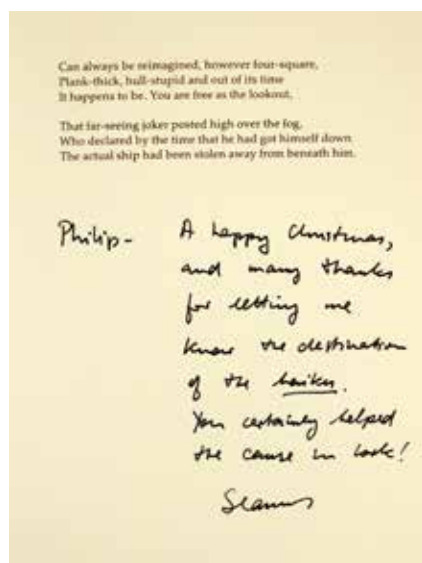 Can always be reimagined, however four-square,
Plank-thick, hull-stupid and out of its time
It happens to be. You are free as the lookout,
That far-seeing joker posted high over the fog,
Who declared by the time that he had got himself down
The actual ship had been stolen away from beneath him.
Philip - A happy Christmas,
and many thanks
for letting me
know the destination
of the haikus.
You certainly helped
the cause in Cork!
Seamus